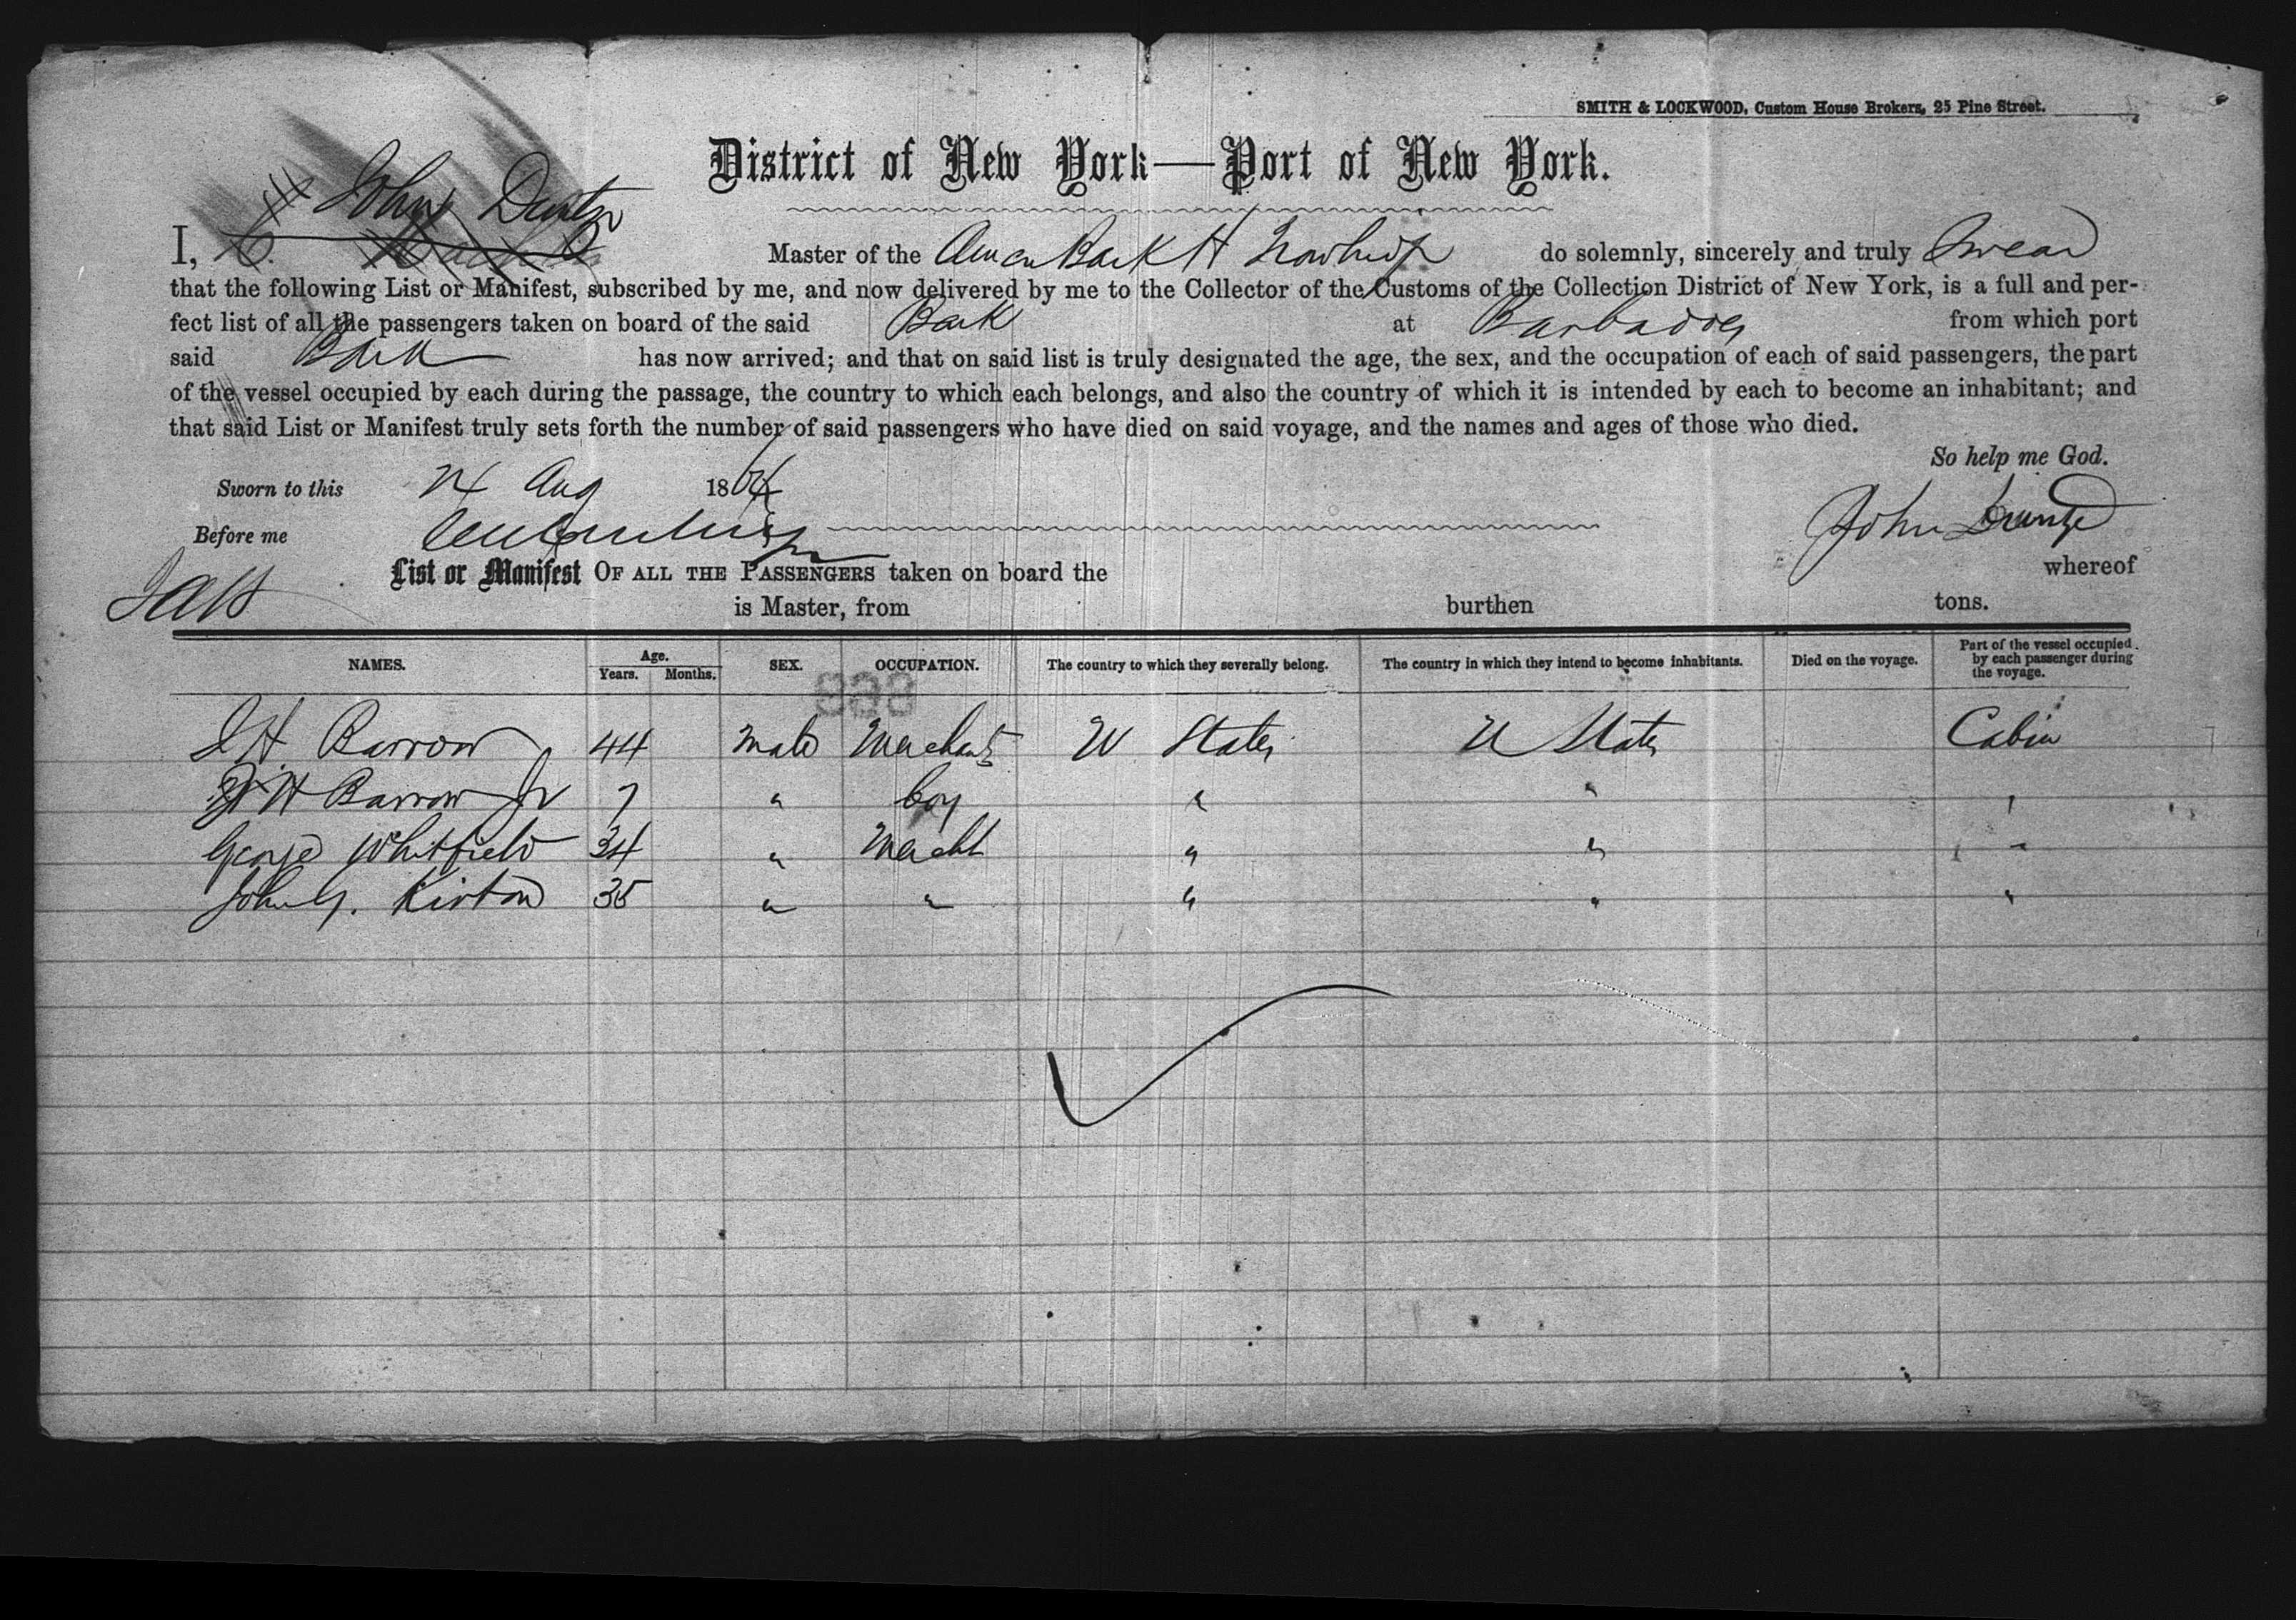 SMITH & LOCKWOOD, Custom House Brokers, 25 Pine Street.
District of New York—Port of New York.
John
I, Master of the Amen Bark H do solemnly, sincerely and truly Swear
that the following List or Manifest, subscribed by me, and now delivered by me to the Collector of the Customs of the Collection District of New York, is a full and per-
fect list of all the passengers taken on board of the said Bark at Barbadoes from which port
said Bark has now arrived; and that on said list is truly designated the age, the sex, and the occupation of each of said passengers, the part
of the vessel occupied by each during the passage, the country to which each belongs, and also the country of which it is intended by each to become an inhabitant; and
that said List or Manifest truly sets forth the number of said passengers who have died on said voyage, and the names and ages of those who died.
So help me God.
Sworn to this 24 Aug 1864
Before me
John
List or Manifest OF ALL THE PASSENGERS taken on board the whereof
is Master, from burthen tons.
NAMES. Age. Years. Months. SEX. OCCUPATION. The country to which they severally belong. The country in which they intend to become inhabitants. Died on the voyage. Part of the vessel occupied by each passenger during the voyage.
H Barrow 44 Male Merchant U States U States Cabin
H Barrow Jr 7 " boy " " "
George Whitfield 34 " Mercht " " "
John G. Kirton 35 " " " " "